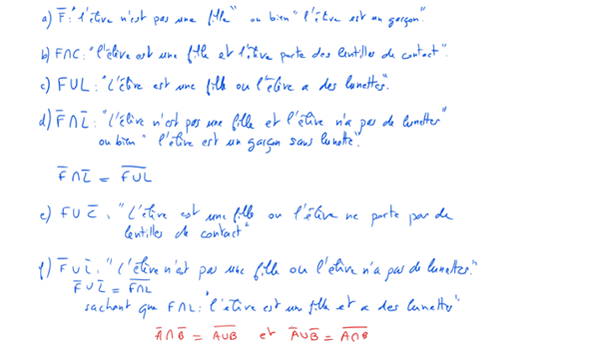 a) F̅ : "l'élève n'est pas une fille" ou bien "l'élève est un garçon".
b) F∩C : "l'élève est une fille et l'élève porte des lentilles de contact".
c) F∪L : "L'élève est une fille ou l'élève a des lunettes".
d) F̅∩L̅ : "L'élève n'est pas une fille et l'élève n'a pas de lunettes"
ou bien "l'élève est un garçon sans lunette".
F̅∩L̅ = \overline{F∪L}
e) F∪C̅ : "L'élève est une fille ou l'élève ne porte pas de
lentilles de contact"
f) F̅∪L̅ : "L'élève n'est pas une fille ou l'élève n'a pas de lunettes."
F̅∪L̅ = \overline{F∩L}
sachant que F∩L : "l'élève est une fille et a des lunettes"
A̅∩B̅ = \overline{A∪B} et A̅∪B̅ = \overline{A∩B}